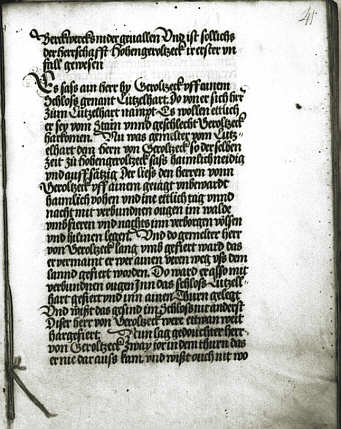 45
Berckwercks nider geuallen Vnd ist sollichs
der herrschafft Hohengeroltzeck ir erster vn
fall gewesen
Es saß ain her vo Geroltzeck vff ainem
Schloß genant Lützelhart. Do von er sich her
zum Lützelhart nampt. Es wöllen ettlich
er sey vom Stam vnnd geschlecht Geroltzeck
harkomen. Nu was gemelter vom Lütz-
elhart dem hern von Geroltzeck so der selben
zeit zu hohengeroltzeck saß haimlich neidig
vnd auffsätzig Der ließ den herren vonn
Geroltzeck vff ainem geiägt vnbewardt
haimlich vohen vnd ine ettlich tag vnnd
nacht mit verbundnen ougen im walde
vmbfieren vnd nachts inn verborgen wölsen
vnd hülinen legen. Vnd do gemelter herr
von Geroltzeck lang vmb gefiert ward das
er vermaint er wer ainen veren weg vß dem
lannd gefiert worden. Do ward er also mit
verbundnen ougen Inn das schloß Lützel-
hart gefiert vnd inn ainen Thurn gelegt
Vnd wißt das gesind im Schloß nit anderst
Diser herr von Geroltzeck were ettwan weit
hargefiert. Nun lag gedouchter herr
von Geroltzeck zway jor in dem thurn das
er nie dar auß kam. vnd wißt ouch nit wo